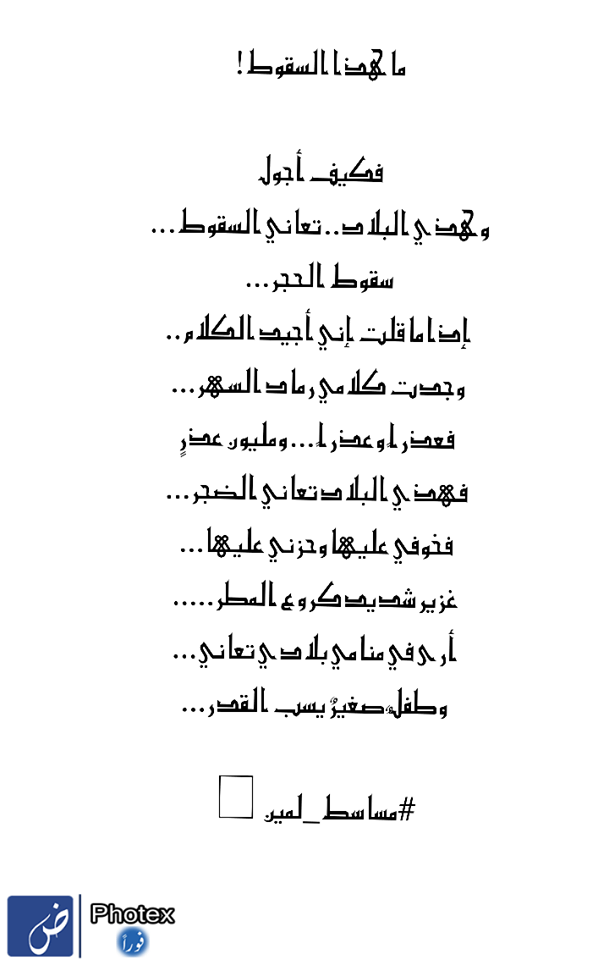 ما هذا السقوط!
فكيف أجول
وهذي البلاد..تعاني السقوط...
سقوط الحجر...
إذا ما قلت إني أجيد الكلام..
وجدت كلامي رماد السهر...
فعذراً وعذراً...ومليون عذرٍ
فهذي البلاد تعاني الضجر...
فخوفي عليها وحزني عليها...
غزير شديد كروع المطر.....
أرى في منامي بلادي تعاني...
وطفلٌ صغيرٌ يسب القدر...
#مساسط_لمين
ض
Photex
فوراً